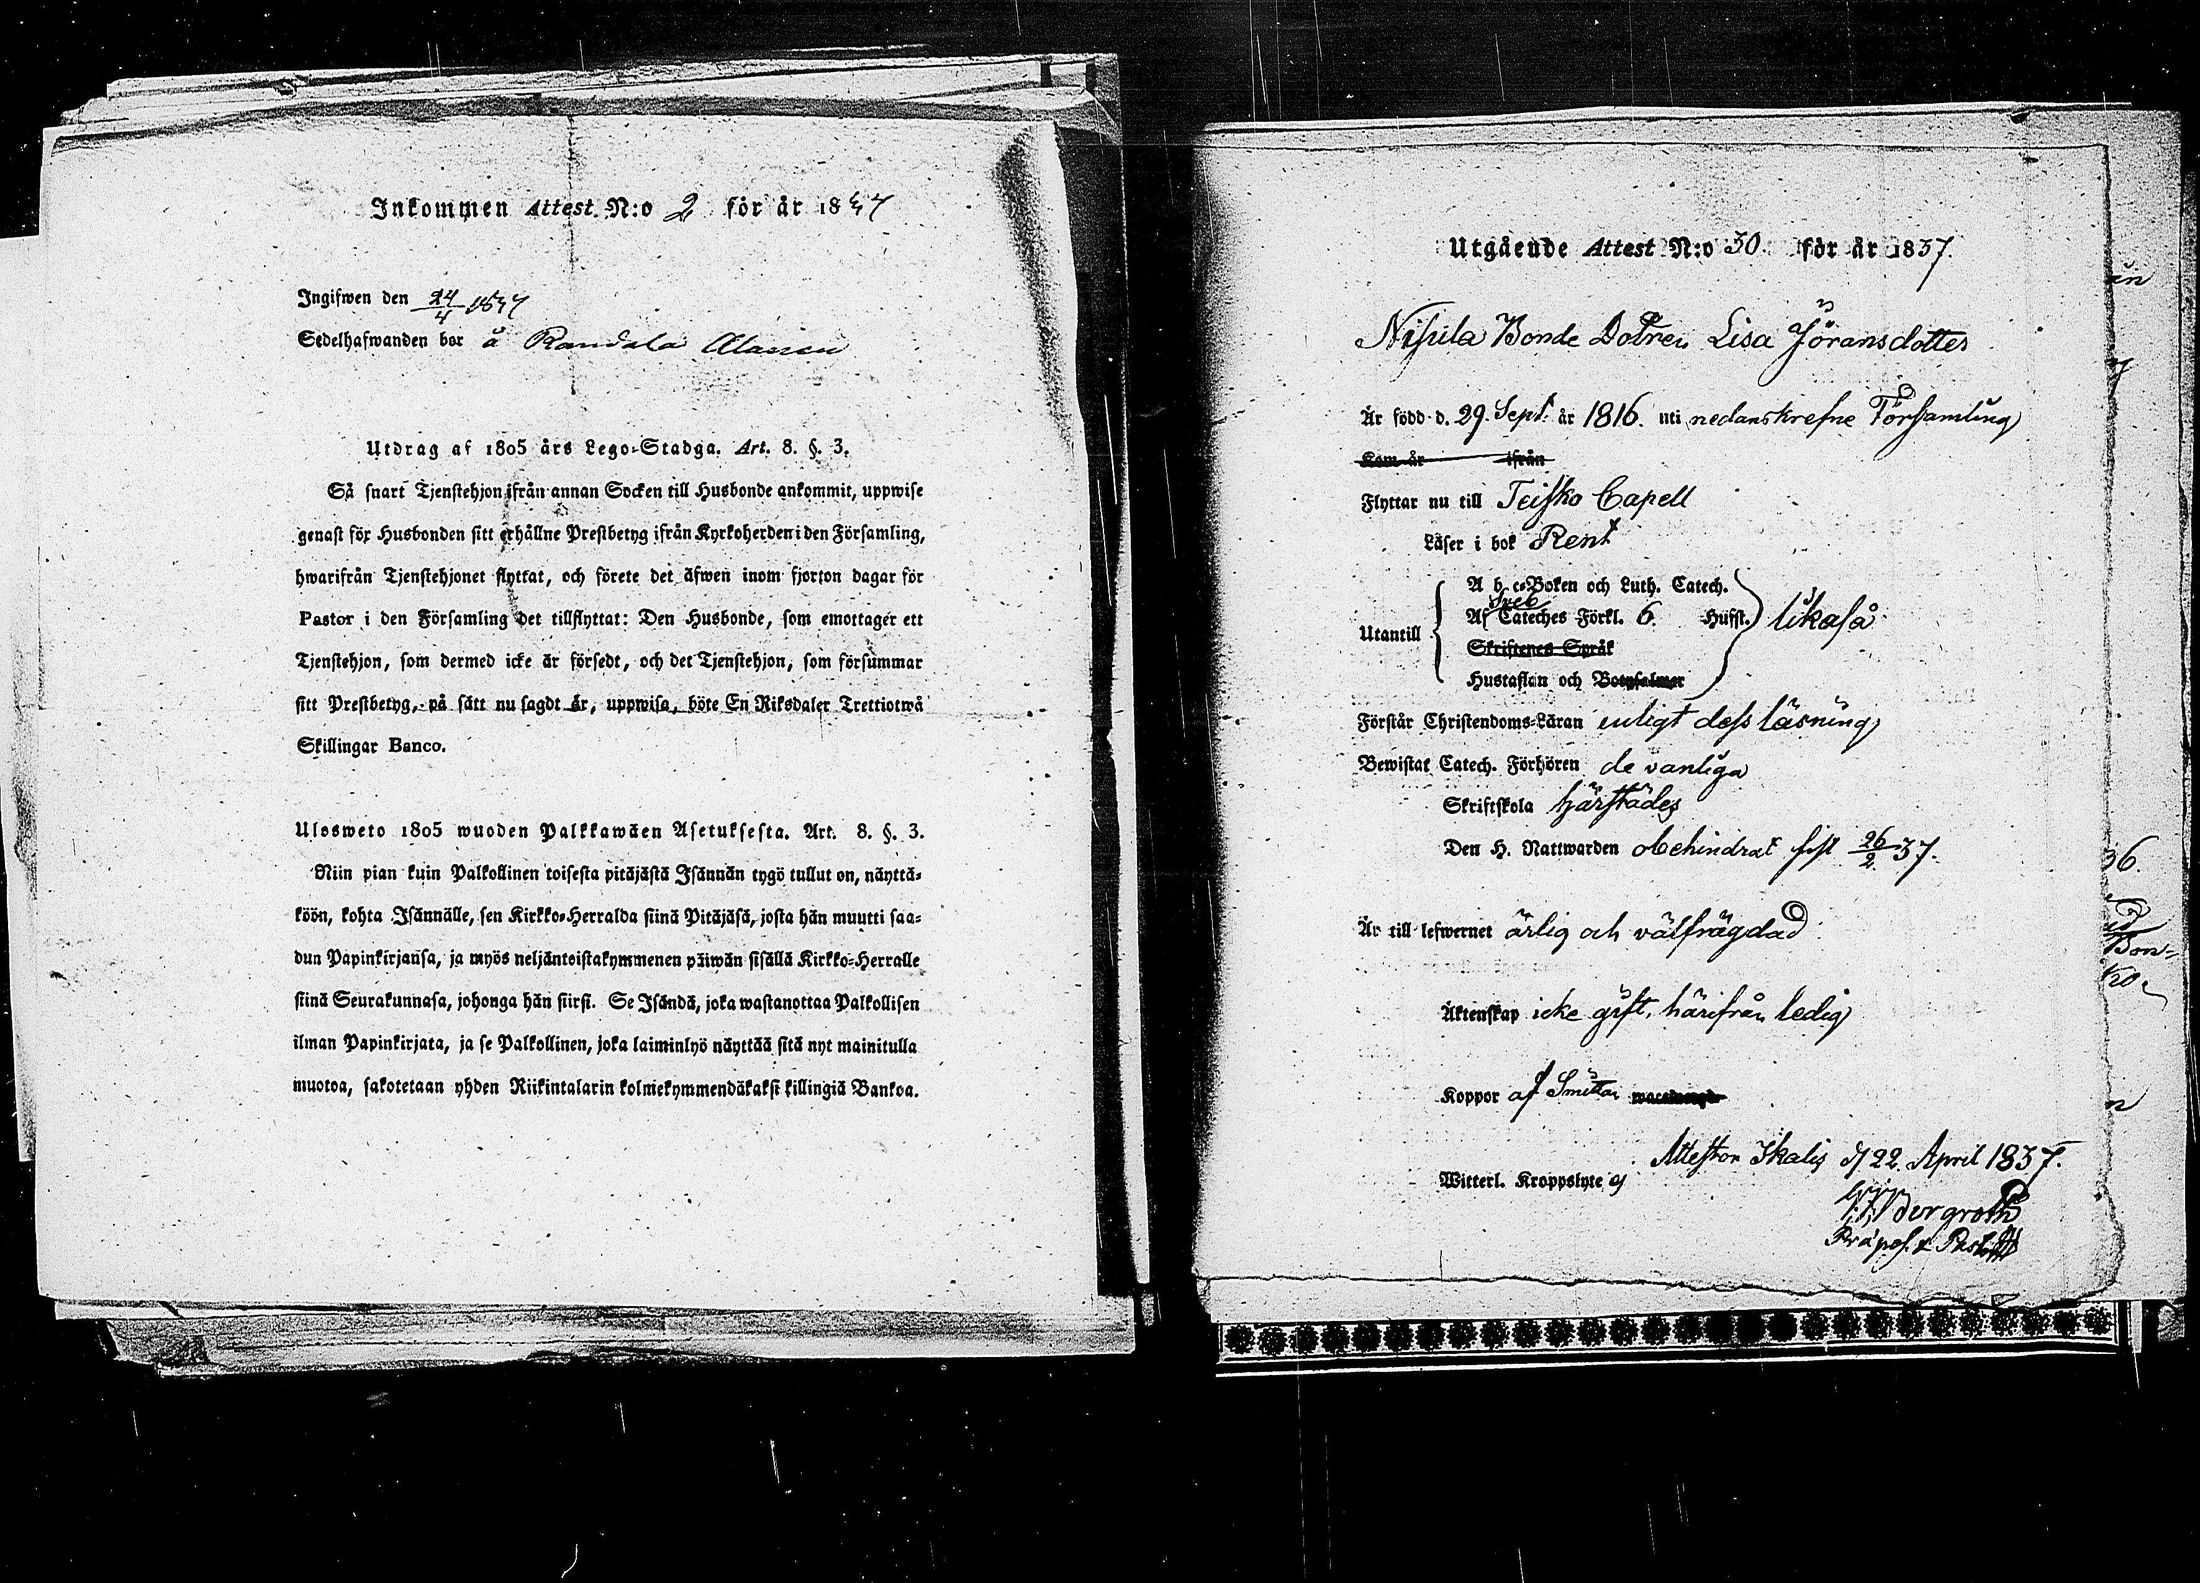 Inkommen Attest. N:o 2 för år 1837
Ingifwen den 24/4 1837
Sedelhafwanden bor å Randala Alanen
Utdrag af 1805 års Lego-Stadga. Art. 8. §. 3.
Så snart Tjenstehjon ifrån annan Socken till Husbonde ankommit, uppwise
genast för Husbonden sitt erhållne Prestbetyg ifrån Kyrkoherden i den Församling,
hwarifrån Tjenstehjonet flyttat, och förete det äfwen inom fjorton dagar för
Pastor i den Församling det tillflyttat: Den Husbonde, som emottager ett
Tjenstehjon, som dermed icke är försedt, och det Tjenstehjon, som försummar
sitt Prestbetyg, på sätt nu sagdt är, uppwisa, böte En Riksdaler Trettiotwå
Skillingar Banco.
Ulosweto 1805 wuoden Palkkawäen Asetuksesta. Art. 8. §. 3.
Niin pian kuin Palkollinen toisesta pitäjästä Isännän tygö tullut on, näyttä-
köön, kohta Isännälle, sen Kirkko-Herralda siinä Pitäjäsä, josta hän muutti saa-
dun Papinkirjansa, ja myös neljäntoistakymmenen päiwän sisällä Kirkko-Herralle
siinä Seurakunnasa, johonga hän siirsi. Se Isändä, joka wastanottaa Palkollisen
ilman Papinkirjata, ja se Palkollinen, joka laiminlyö näyttää sitä nyt mainitulla
muotoa, sakotetaan yhden Riikintalarin kolmekymmendäkaksi killingiä Bankoa.
Utgående Attest N:o 30. för år 1837.
Nisula Bonde Dotren Lisa Jöransdotter
Är född d. 29. Sept. år 1816. uti nedanskrefne Församling
Kom år ifrån
Flyttar nu till Teisko Capell
Läser i bok Rent
A b c-Boken och Luth. Catech.
Sveb
Utantill Af Cateches Förkl. 6. Hufst. likaså
Skriftenes Språk
Hustaflan och Botpsalmer
Förstår Christendoms-Läran enligt dess läsning
Bewistat Catech. Förhören de vanliga
Skriftskola härstädes
Den H. Nattwarden obehindrat sist 26/2 37.
Är till lefwernet ärlig och välfrägdad
Äktenskap icke gift, härifrån ledig
Koppor af Smittan
Attestor Ikalis d 22 April 1837.
Witterl. Kroppslyte ej
Bergroth
Präpos. & Past
in
36.
Bon-
ko.
n